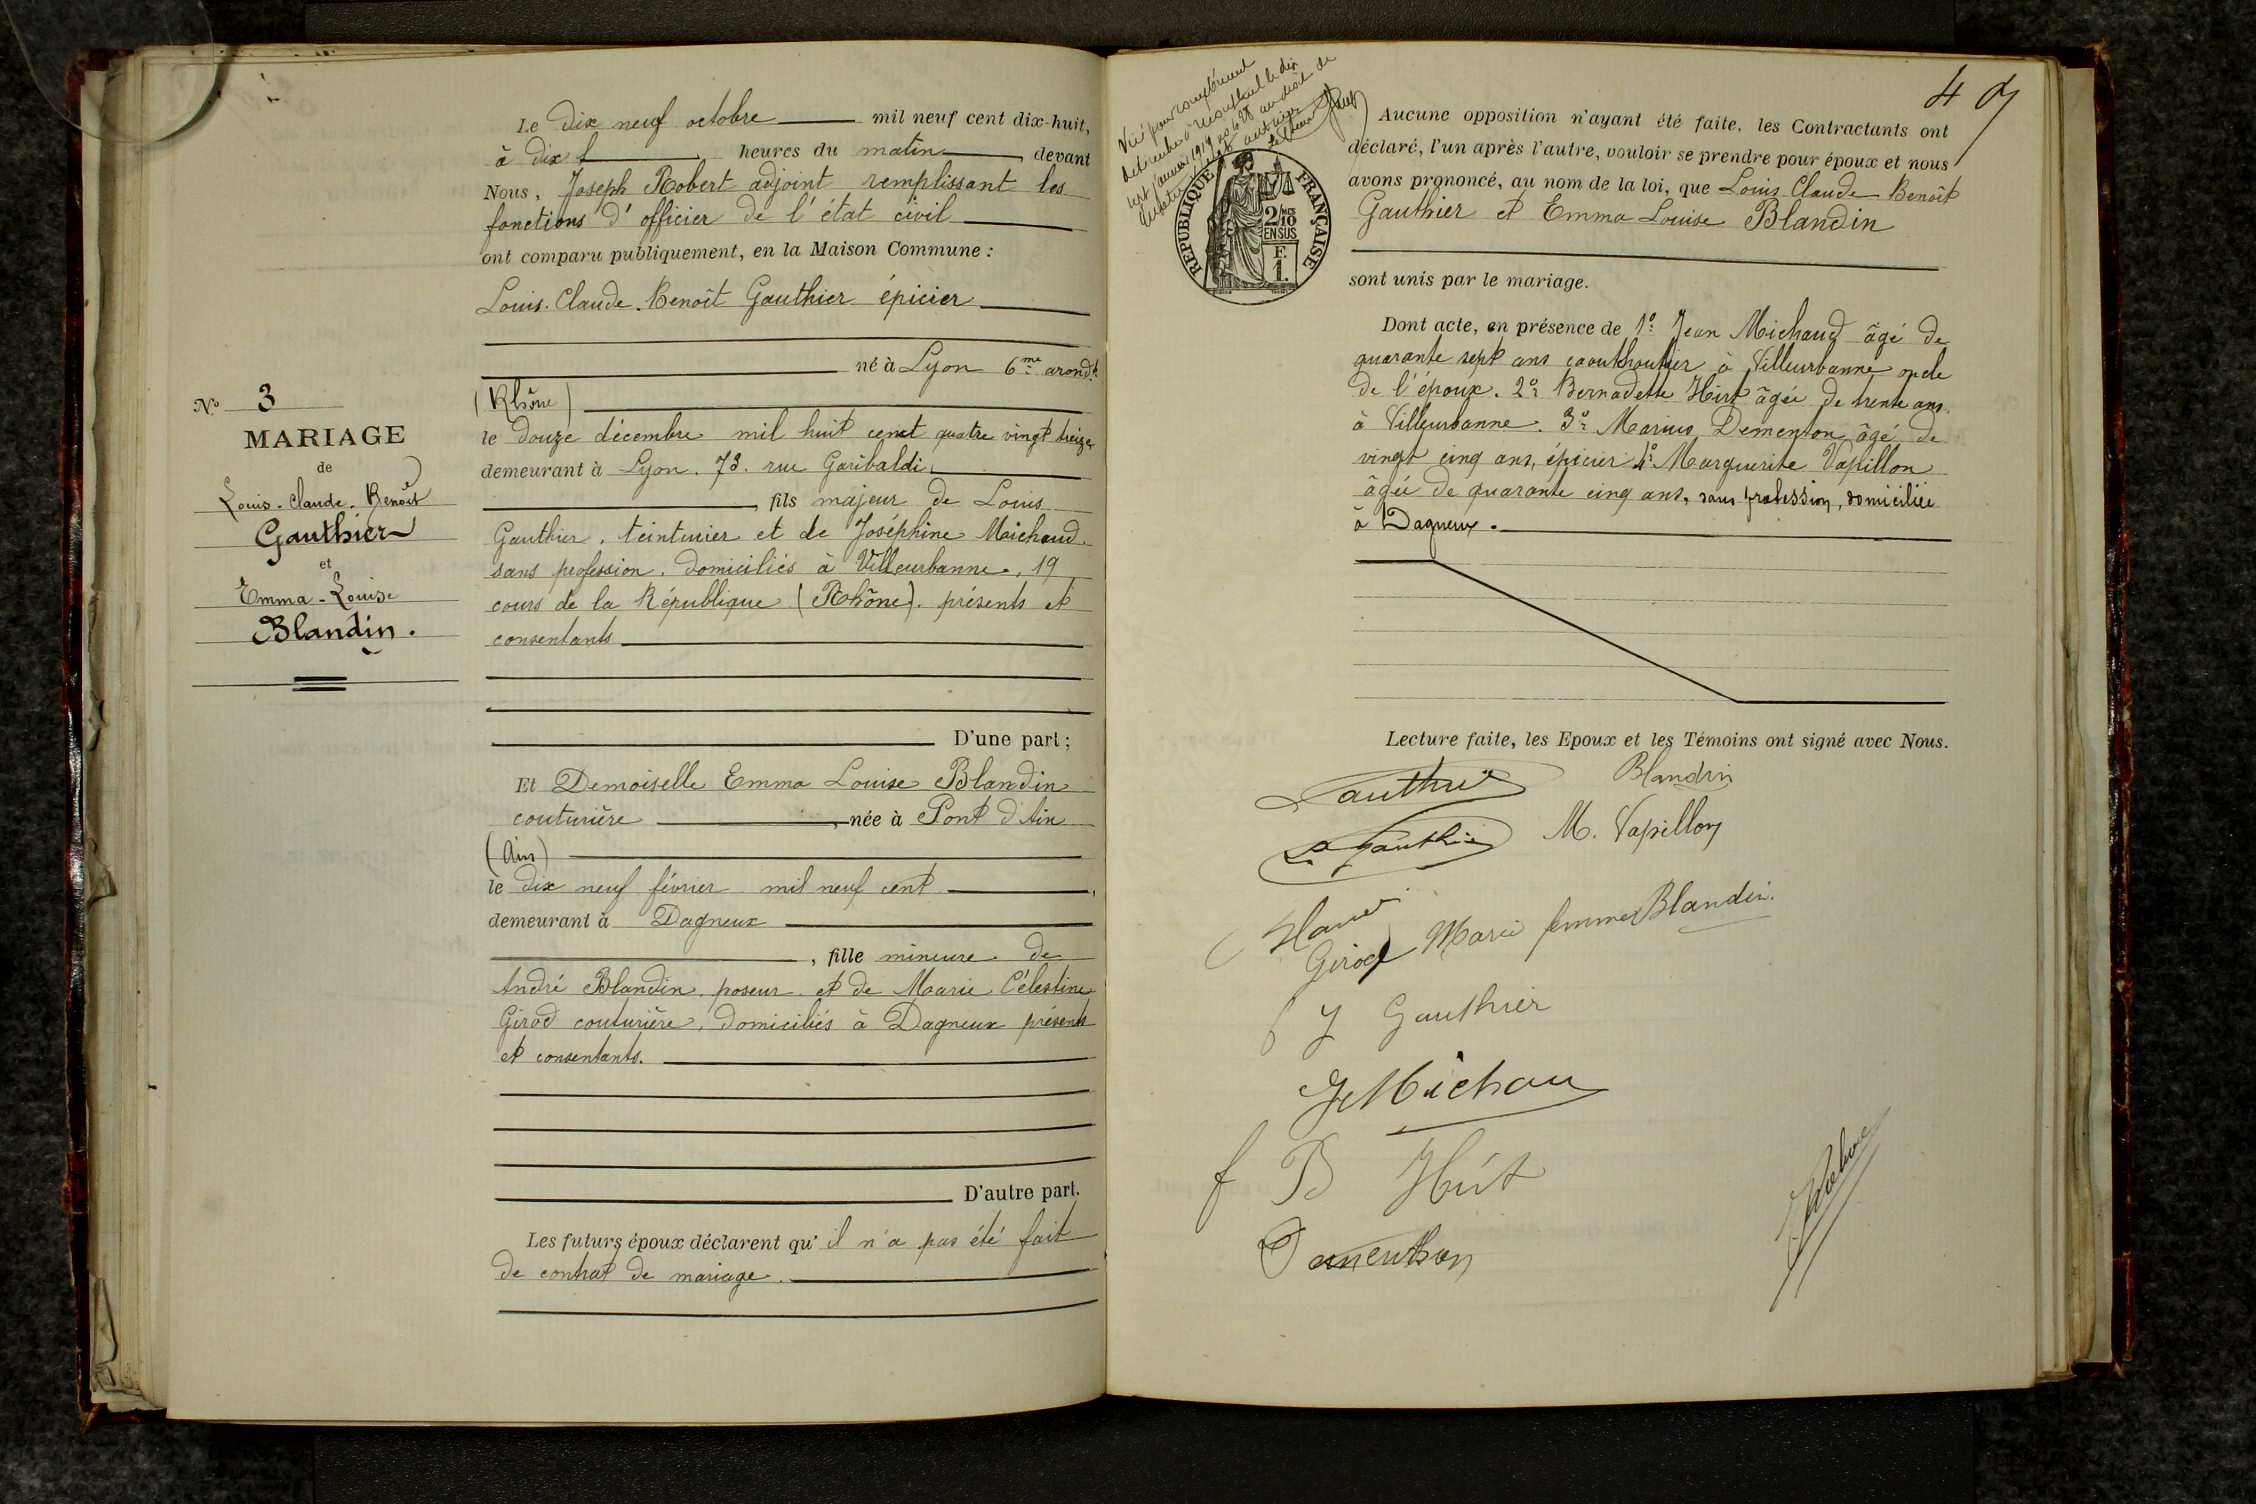 Le dix neuf octobre mil neuf cent dix-huit,
à dix heures du matin, devant
Nous, Joseph Robert adjoint remplissant les
fonctions d'officier de l'état civil
ont comparu publiquement, en la Maison Commune :
Louis. Claude. Benoît Gauthier épicier
né à Lyon 6me arondt.
(Rhône)
le douze décembre mil huit cent quatre vingt treize,
demeurant à Lyon. 73. rue Garibaldi,
, fils majeur de Louis
Gauthier, teinturier et de Joséphine Maichaud
sans profession. domiciliés à Villeurbanne, 19
cours de la République (Rhône). présents et
consentants
D'une part ;
Et Demoiselle Emma Louise Blandin
couturière, née à Pont d'Ain
(Ain)
le dix neuf février mil neuf cent,
demeurant à Dagneux
, fille mineure de
André Blandin, poseur et de Marie Célestine
Girod couturière, domiciliés à Dagneux présents
et consentants.
D'autre part.
Les futurs époux déclarent qu'il n'a pas été fait
de contrat de mariage.
No 3
MARIAGE
de
Louis. Claude. Benoît
Gauthier
et
Emma-Louise
Blandin.
Visé pour
sept janvier 1919
RÉPUBLIQUE FRANÇAISE
2/10
EN SUS
F.
1.
4
Aucune opposition n'ayant été faite, les Contractants ont
déclaré, l'un après l'autre, vouloir se prendre pour époux et nous
avons prononcé, au nom de la loi, que Louis Claude Benoît
Gauthier et Emma Louise Blandin
sont unis par le mariage.
Dont acte, en présence de 1o Jean Michaud âgé de
quarante sept ans caouthoutier à Villeurbanne oncle
de l'époux. 2o Bernadette Hirt âgée de trente ans
à Villeurbanne. 3o Marius Dementon âgé de
vingt cinq ans, épicier 4o Marguerite Vapillon
âgée de quarante cinq ans, sans profession, domiciliée
à Dagneux.
Lecture faite, les Epoux et les Témoins ont signé avec Nous.
Gauthier Blandin
L. Gauthier M. Vapillon
Girod Marie femme Blandin.
J Gauthier
J Michau
B Hirt